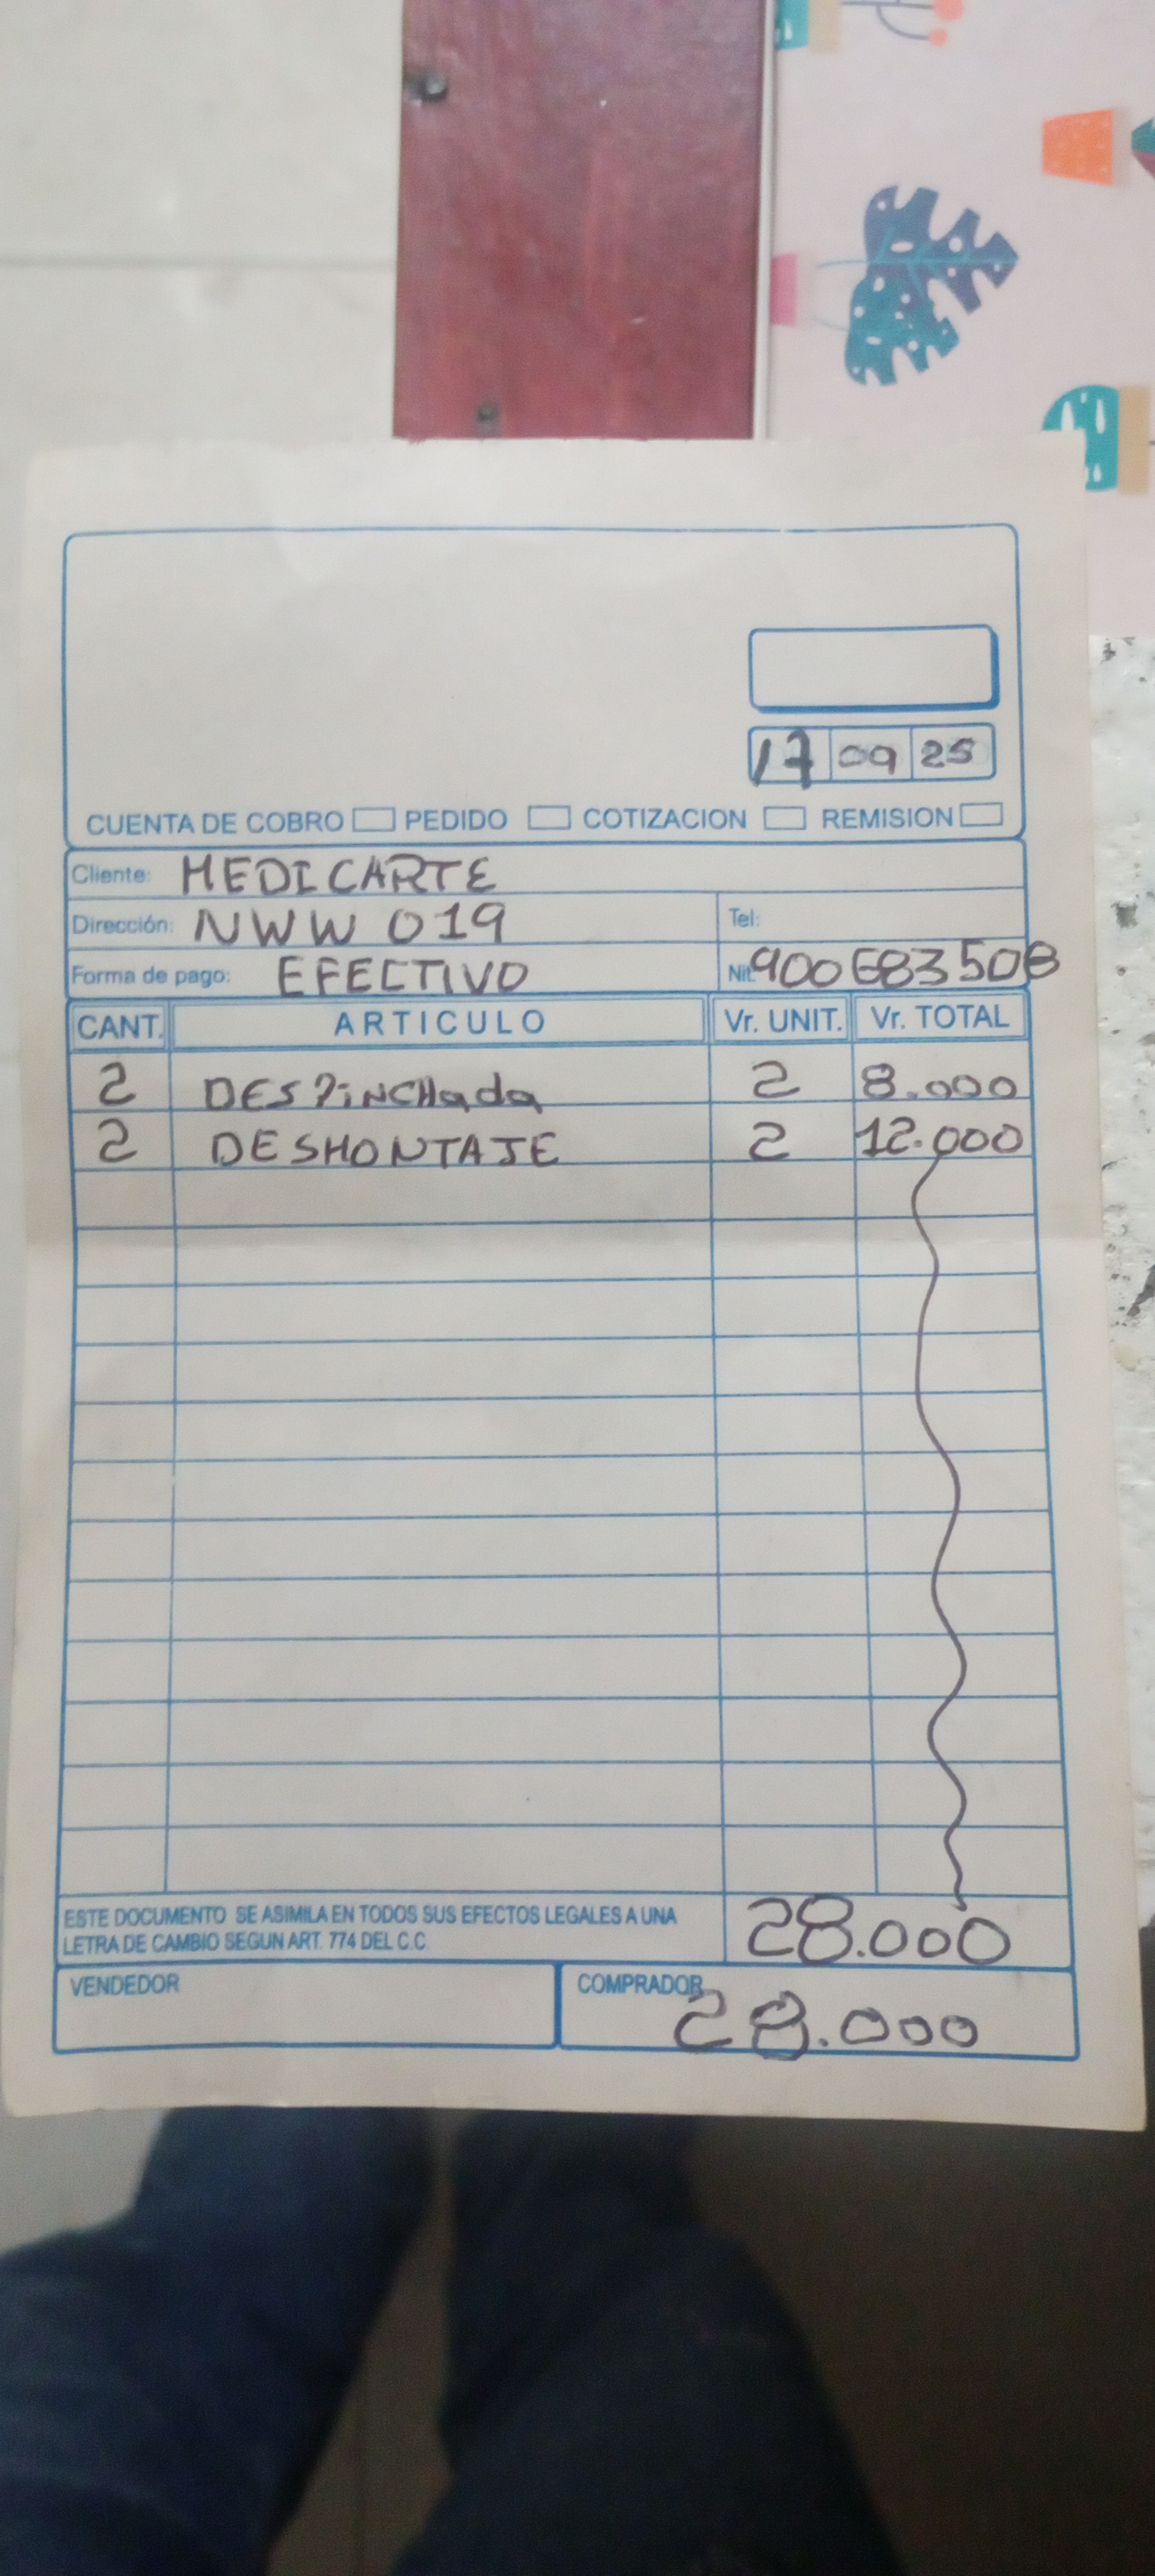 17 09 25
CUENTA DE COBRO PEDIDO COTIZACION REMISION
Cliente: MEDICARTE
Dirección: NWW 019 Tel:
Forma de pago: EFECTIVO Nit. 900683508
CANT. ARTICULO Vr. UNIT. Vr. TOTAL
2 DESPiNCHada 2 8.000
2 DESMONTAJE 2 12.000
ESTE DOCUMENTO SE ASIMILA EN TODOS SUS EFECTOS LEGALES A UNA
LETRA DE CAMBIO SEGUN ART. 774 DEL C.C.
28.000
VENDEDOR COMPRADOR
28.000